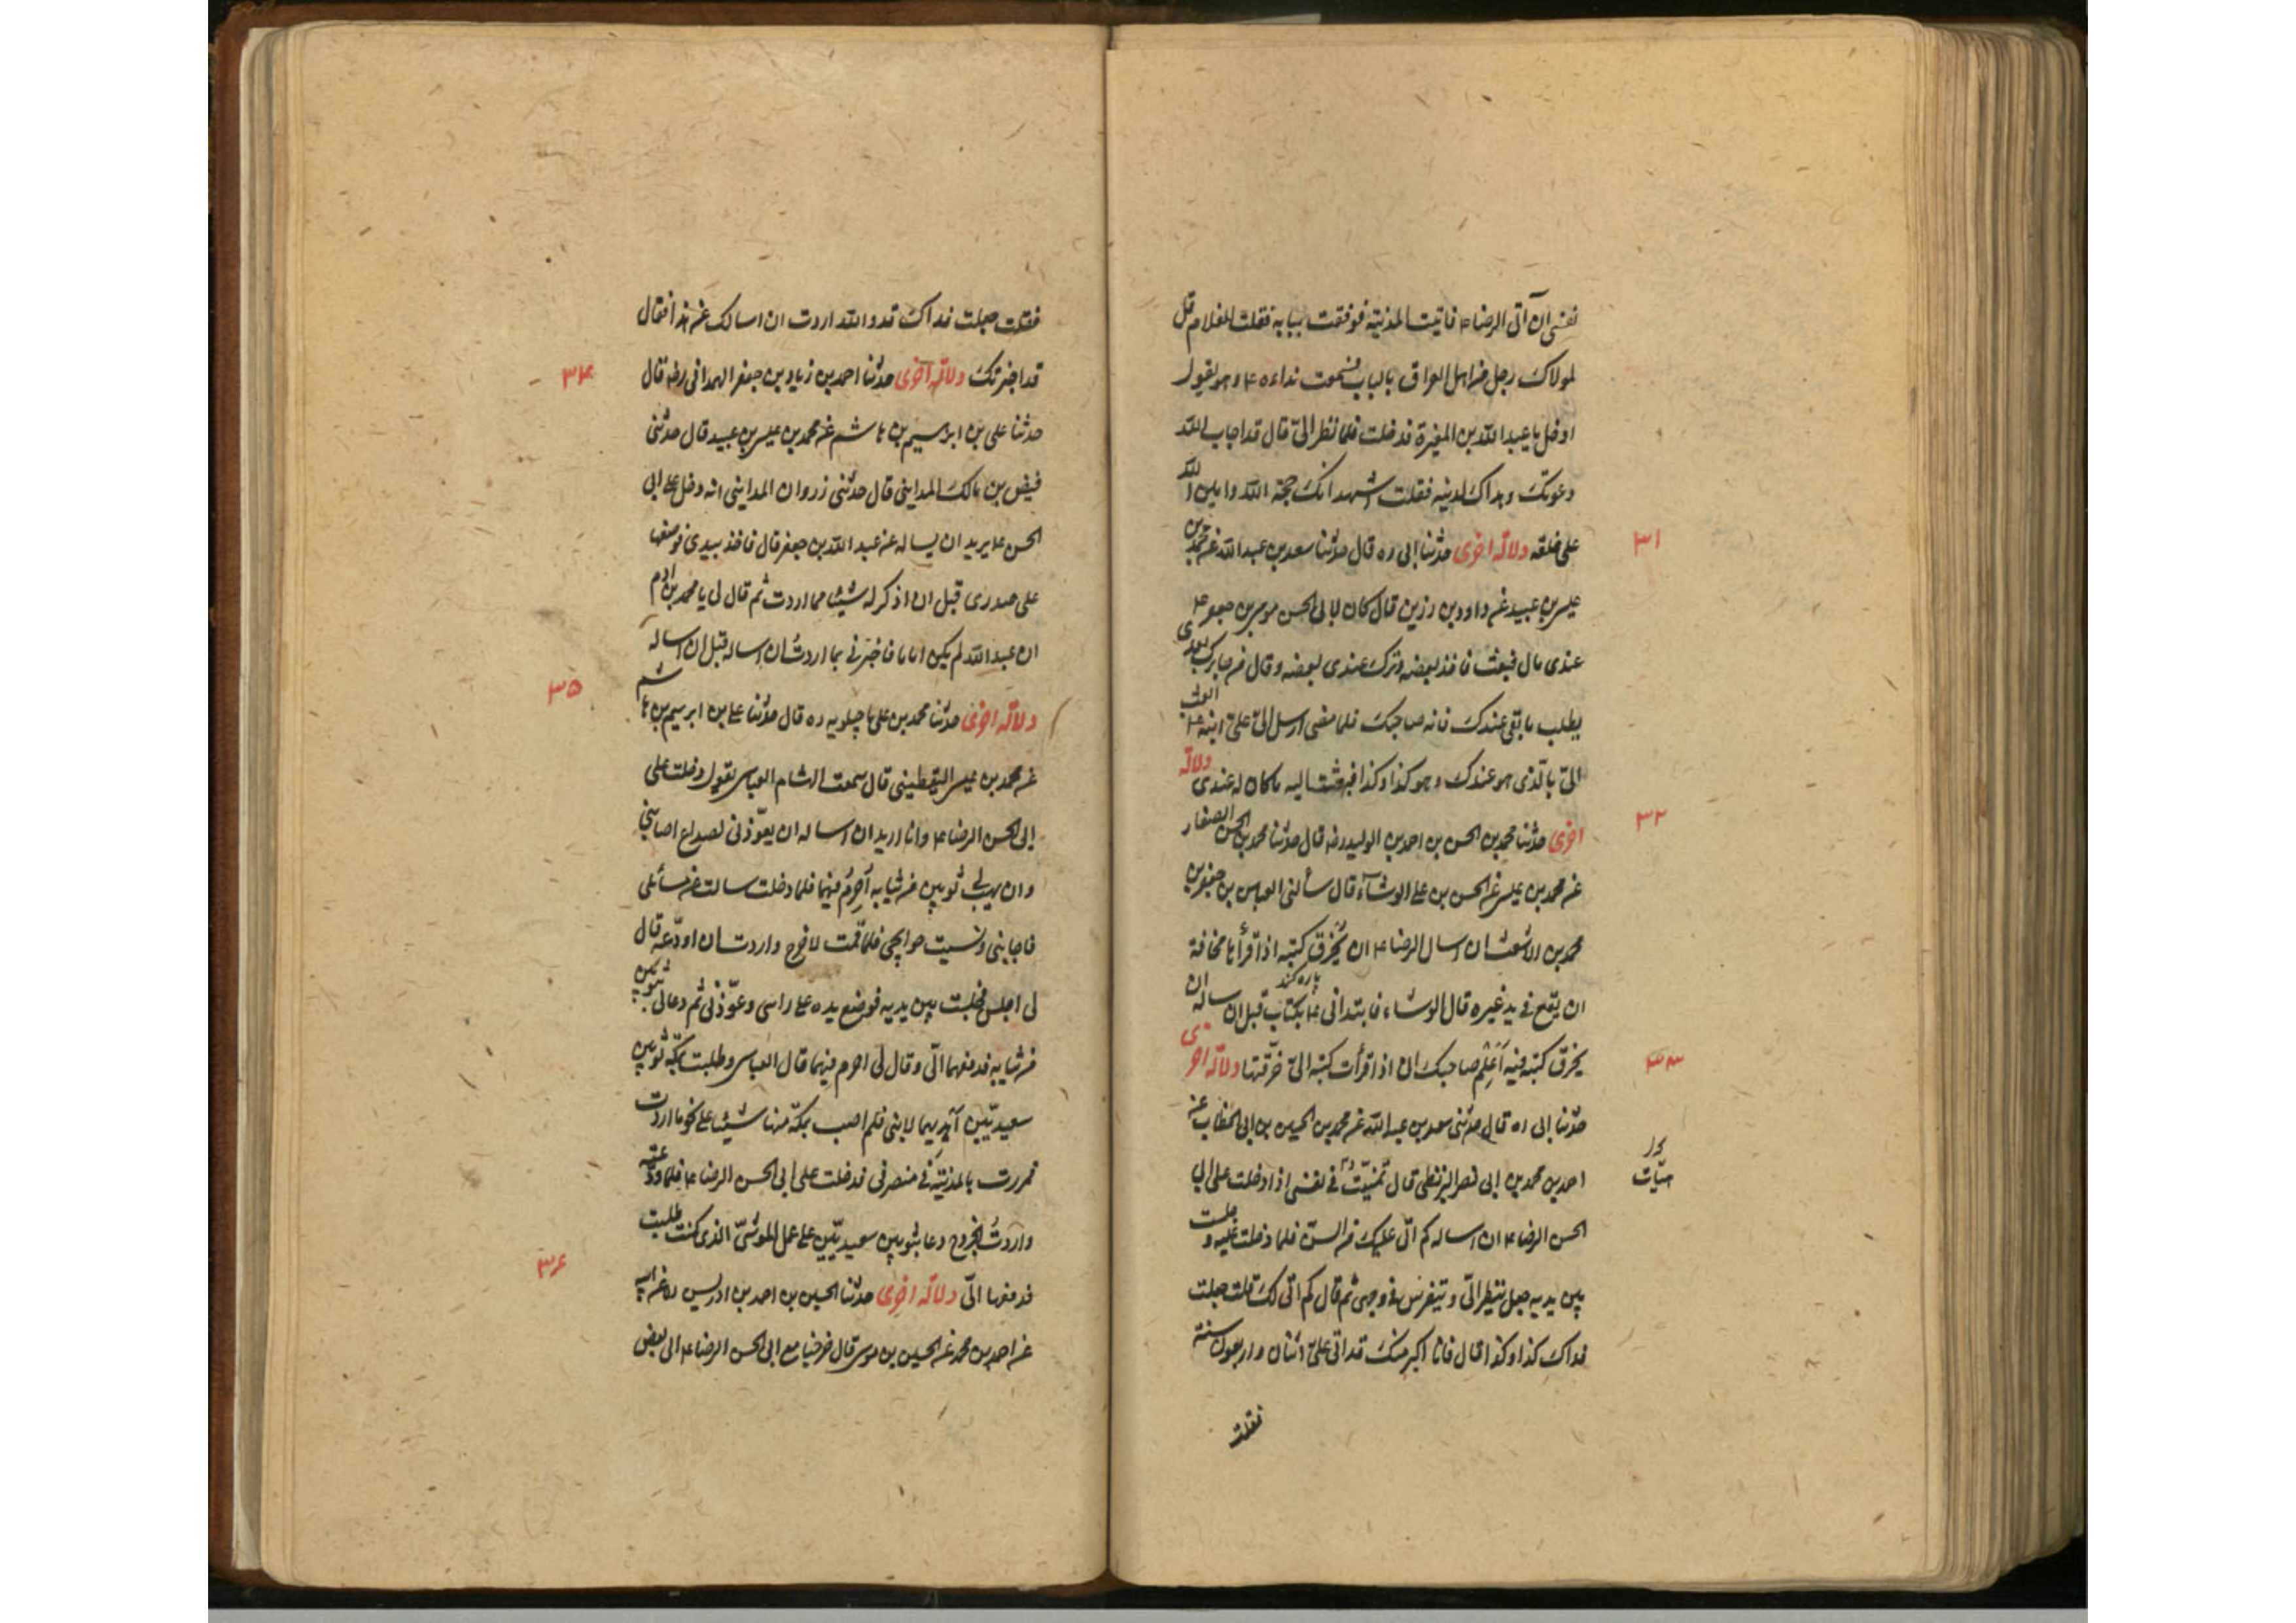 نفسی ان آتی الرضا ع فاتیت المدینة فوقفت ببابه فقلت للغلام قل
لمولاک رجل من اهل العراق بالباب فسمعت نداءه ع و هو یقول
ادخل یا عبد الله بن المغیرة فدخلت فلما نظر الیّ قال قد اجاب الله
دعوتک و هداک لدینه فقلت اشهد انک حجة الله و امین الله
علی خلقه دلالة اخری حدثنا ابی ره قال حدثنا سعد بن عبد الله عن محمد بن
٣١
عیسی بن عبید عن داود بن رزین قال کان لابی الحسن موسی بن جعفر ع
عندی مال فبعث فاخذ بعضه و ترک عندی بعضه و قال من جاءک بعدی
یطلب ما بقی عندک فانه صاحبک فلما مضی ارسل الیّ علیّ ابنه ع ابعث
الیّ بالذی هو عندک و هو کذا و کذا فبعثت الیه ما کان له عندی دلالة
اخری حدثنا محمد بن الحسن بن احمد بن الولید رضه قال حدثنا محمد بن الحسن الصفار
٣٢
عن محمد بن عیسی عن الحسن بن علی الوشآء قال سألنی العباس بن جعفر بن
محمد بن الاشعث ان اسال الرضا ع ان یُخرق کتبه اذا قرأها مخافة
پاره کند
ان یقع فی ید غیره قال الوشاء فابتدانی ع بکتاب قبل ان اساله ان
یخرق کتبه فیه اَعلِم صاحبک انی اذا قرأت کتبه الیّ خرّقتها دلالة اخری
٣٣
حدثنا ابی ره قال حدثنی سعد بن عبد الله عن محمد بن الحسین بن ابی الخطاب عن
احمد بن محمد بن ابی نصر البزنطی قال تمنّیتُ فی نفسی اذا دخلت علی ابی
الحسن الرضا ع ان اساله کم اتی علیک من السنّ فلما دخلت علیه و جلست
بین یدیه جعل ینظر الیّ و یتفرس فی وجهی ثم قال کم اتی لک قلت جعلت
فداک کذا و کذا قال فانا اکبر منک قد اتی علیّ اثنان و اربعون سنة
فقلت
فقلت جعلت فداک قد و الله اردت ان اسالک عن هذا فقال
قد اخبرتک دلالة اخری حدثنا احمد بن زیاد بن جعفر الهمدانی رضه قال
٣٤
حدثنا علی بن ابراهیم بن هاشم عن محمد بن عیسی بن عبید قال حدثنی
فیض بن مالک المداینی قال حدثنی زروان المداینی انه دخل علی ابی
الحسن ع یرید ان یساله عن عبد الله بن جعفر قال فاخذ بیدی فوضعها
علی صدری قبل ان اذکر له شیئا مما اردت ثم قال لی یا محمد بن آدم
ان عبد الله لم یکن اماما فاخبرنی بما اردتُ ان اساله قبل ان اساله
دلالة اخری حدثنا محمد بن علی ماجیلویه ره قال حدثنا علی بن ابرهیم بن هاشم
٣٥
عن محمد بن عیسی الیقطینی قال سمعت الهشام العباسی یقول دخلت علی
ابی الحسن الرضا ع و انا ارید ان اساله ان یعوّذنی لصداع اصابنی
و ان یهب لی ثوبین من ثیابه اُحرِمُ فیهما فلما دخلت سالت عن مسائلی
فاجابنی و نسیت حوائجی فلما قمت لاخرج و اردت ان اودّعه قال
لی اجلس فجلست بین یدیه فوضع یده علی راسی و عوّذنی ثم دعا لی بثوبین
من ثیابه فدفعهما الیّ و قال لی احرم فیهما قال العباسی و طلبت بمکّة ثوبین
سعیدیّین اُهدیهما لابنی فلم اصب بمکّة منها شیئا علی نحو ما اردت
فمررت بالمدینة فی منصرفی فدخلت علی ابی الحسن الرضا ع فلما ودّعته
و اردتُ الخروج دعا بثوبین سعیدیّین علی عمل الموشیّ الذی کنت طلبت
فدفعها الیّ دلالة اخری حدثنا الحسین بن احمد بن ادریس ره عن ابیه
٣٦
عن احمد بن محمد عن الحسین بن موسی قال خرجنا مع ابی الحسن الرضا ع الی بعض